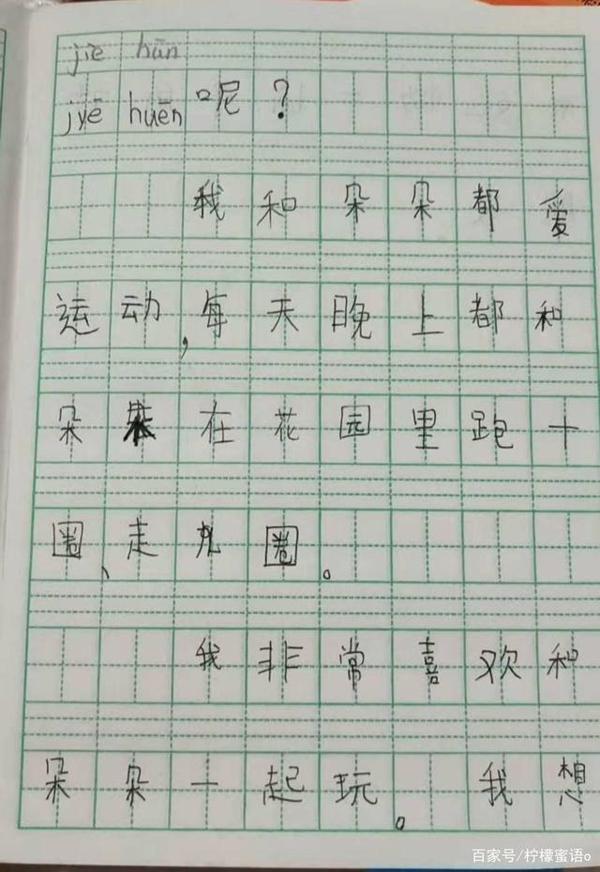 jiē hūn
jyē huēn呢？
我和朵朵都爱
运动,每天晚上都和
朵朵在花园里跑十
圈、走九圈。
我非常喜欢和
朵朵一起玩。我想
百家号/柠檬蜜语o